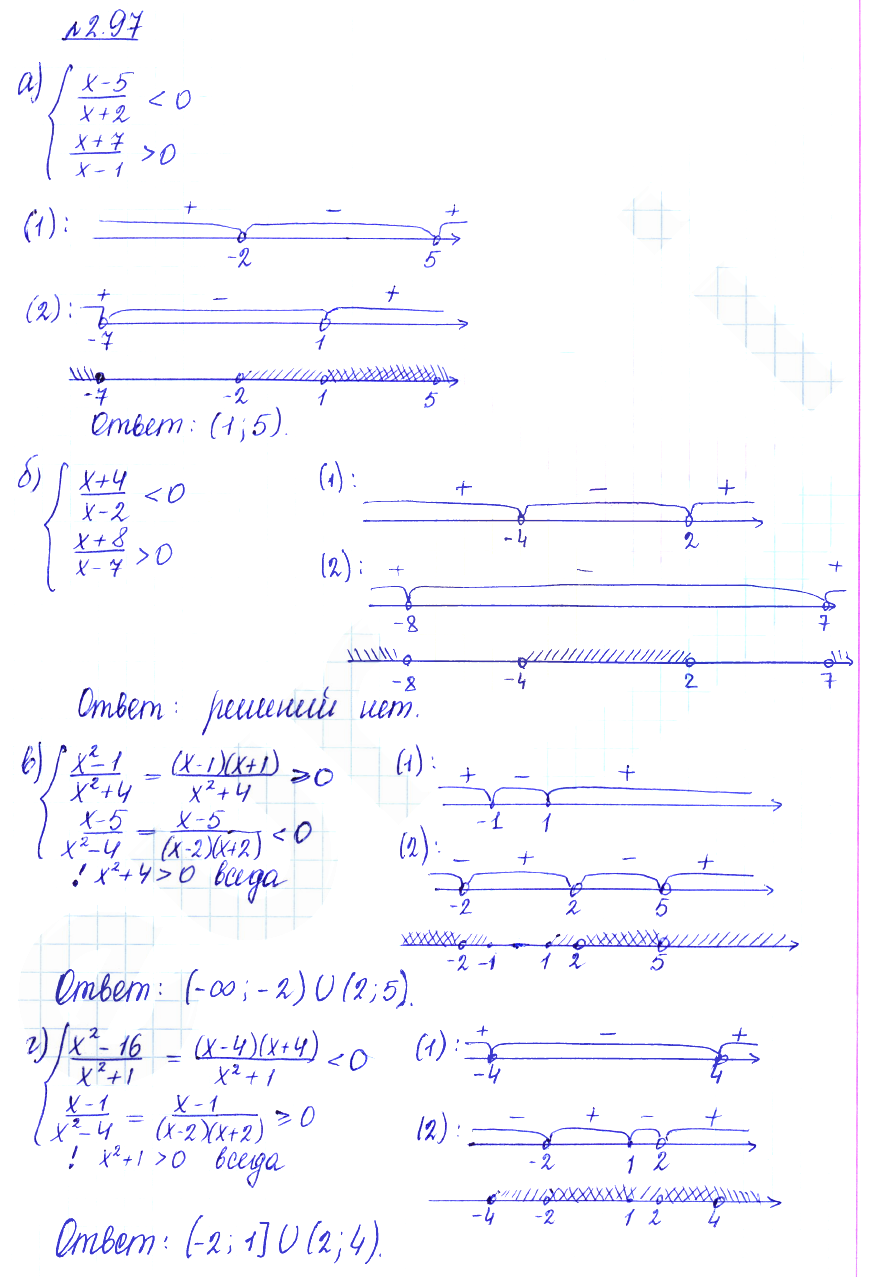 №2.97
а) { (x-5)/(x+2) < 0
(x+7)/(x-1) > 0
(1): + - +
-2 5
(2): + - +
-7 1
-7 -2 1 5
Ответ: (1; 5).
б) { (x+4)/(x-2) < 0
(x+8)/(x-7) > 0
(1): + - +
-4 2
(2): + - +
-8 7
-8 -4 2 7
Ответ: решений нет.
в) { (x²-1)/(x²+4) = ((x-1)(x+1))/(x²+4) ⩾ 0
(x-5)/(x²-4) = (x-5)/((x-2)(x+2)) < 0
! x²+4 > 0 всегда
(1): + - +
-1 1
(2): - + - +
-2 2 5
-2 -1 1 2 5
Ответ: (-∞; -2) U (2; 5).
г) { (x²-16)/(x²+1) = ((x-4)(x+4))/(x²+1) < 0
(x-1)/(x²-4) = (x-1)/((x-2)(x+2)) ⩾ 0
! x²+1 > 0 всегда
(1): + - +
-4 4
(2): - + - +
-2 1 2
-4 -2 1 2 4
Ответ: (-2; 1] U (2; 4).